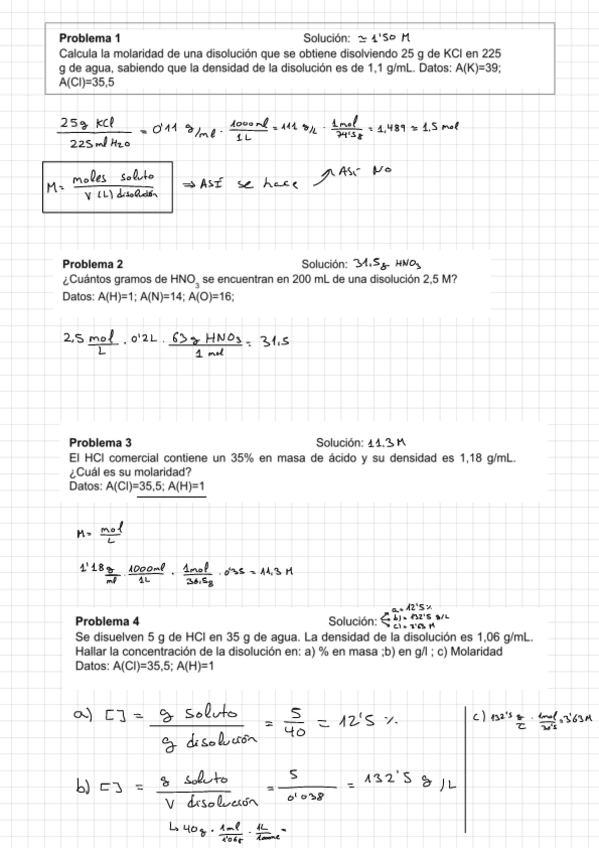 Problema 1 Solución: ≃ 1'50 M
Calcula la molaridad de una disolución que se obtiene disolviendo 25 g de KCl en 225
g de agua, sabiendo que la densidad de la disolución es de 1,1 g/mL. Datos: A(K)=39;
A(Cl)=35,5
25g KCl / 225ml H2O = 0'11 g/ml · 1000ml / 1L = 111 g/L · 1mol / 74'5g = 1,489 ≃ 1,5 mol
M = moles soluto / V (L) disolución ⇒ ASÍ se hace ↗ ASÍ NO
Problema 2 Solución: 31,5g HNO3
¿Cuántos gramos de HNO3 se encuentran en 200 mL de una disolución 2,5 M?
Datos: A(H)=1; A(N)=14; A(O)=16;
2,5 mol / L · 0'2L · 63g HNO3 / 1 mol = 31,5
Problema 3 Solución: 11,3 M
El HCl comercial contiene un 35% en masa de ácido y su densidad es 1,18 g/mL.
¿Cuál es su molaridad?
Datos: A(Cl)=35,5; A(H)=1
M = mol / L
1'18 g / ml · 1000ml / 1L · 1mol / 36,5g · 0'35 = 11,3 M
Problema 4 Solución: a = 12'5% b) = 132'5 g/L c) = 3'63 M
Se disuelven 5 g de HCl en 35 g de agua. La densidad de la disolución es 1,06 g/mL.
Hallar la concentración de la disolución en: a) % en masa ;b) en g/l ; c) Molaridad
Datos: A(Cl)=35,5; A(H)=1
a) [ ] = g soluto / g disolución = 5 / 40 = 12'5 %
b) [ ] = g soluto / V disolución = 5 / 0'038 = 132'5 g /L
↳ 40g · 1ml / 1'06g · 1L / 1000ml =
c) 132'5 g / L · 1mol / 36'5 = 3'63M